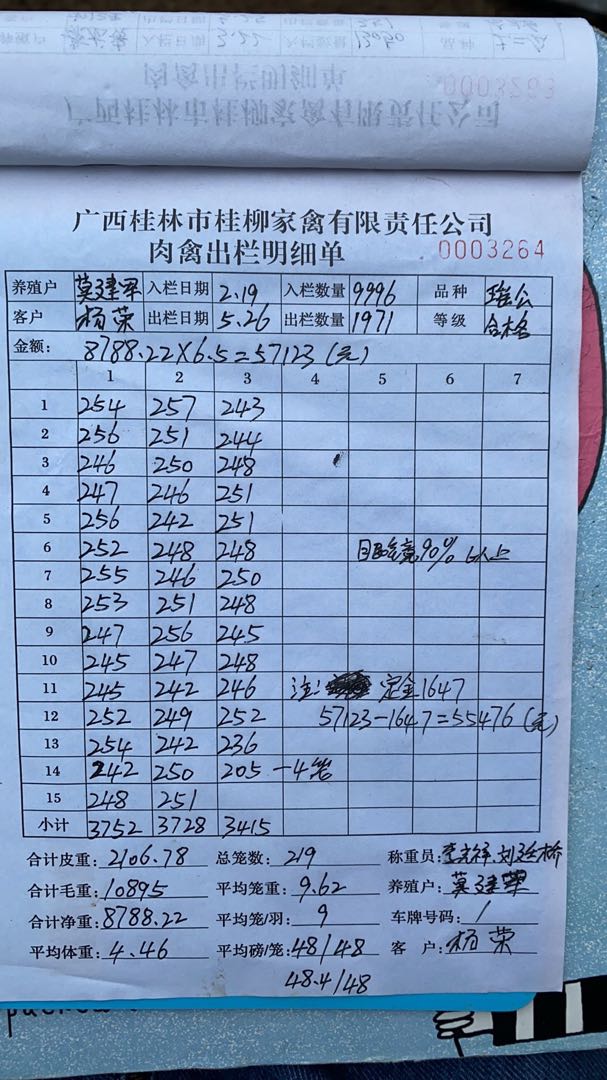 广西桂林市桂柳家禽有限责任公司
肉禽出栏明细单 0003264
养殖户 莫建军 入栏日期 2.19 入栏数量 9996 品种
客户 杨荣 出栏日期 5.26 出栏数量 1971 等级 合格
金额: 8788.22×6.5=57123(元)
1 2 3 4 5 6 7
1 254 257 243
2 256 251 244
3 246 250 248
4 247 246 251
5 256 242 251
6 252 248 248 90% 以上
7 255 246 250
8 253 251 248
9 247 256 245
10 245 247 248
11 245 242 246 注: 定金1647
12 252 249 252 57123-1647=55476(元)
13 254 242 236
14 242 250 205 -4笼
15 248 251
小计 3752 3728 3415
合计皮重: 2106.78 总笼数: 219 称重员:
合计毛重: 10895 平均笼重: 9.62 养殖户: 莫建军
合计净重: 8788.22 平均笼/羽: 9 车牌号码: /
平均体重: 4.46 平均磅/笼: 48/48 客户: 杨荣
48.4/48